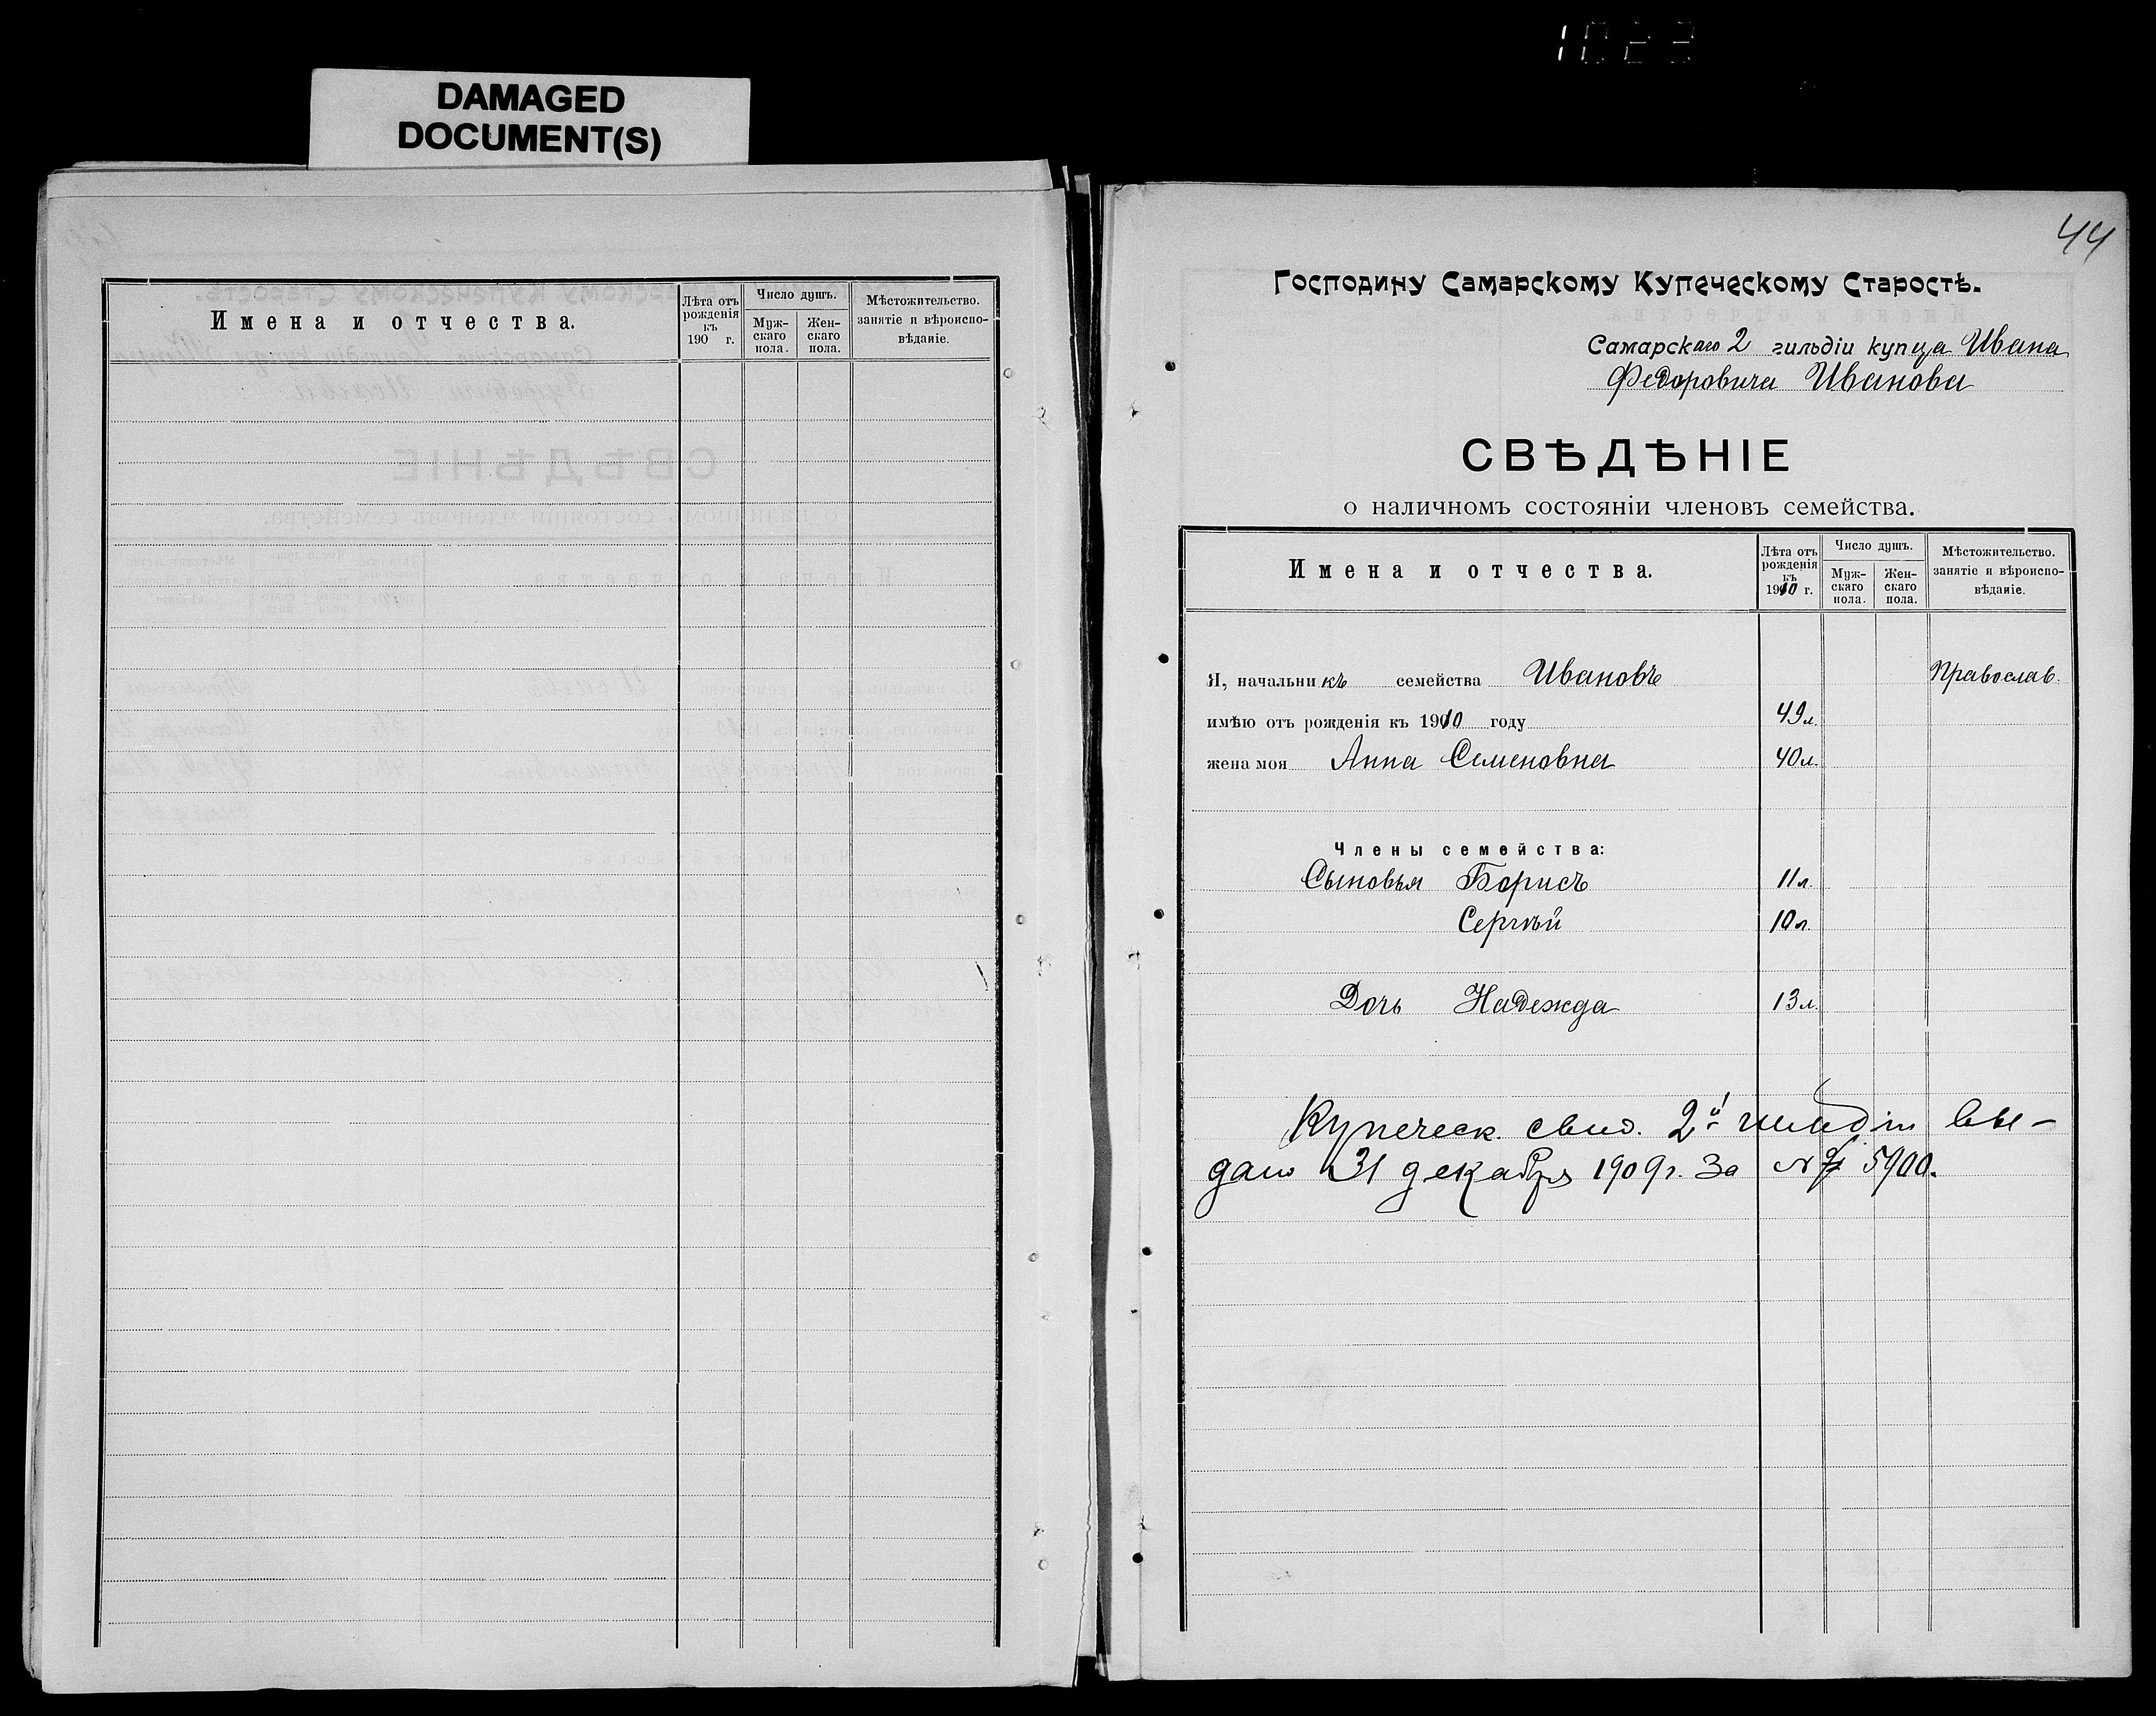 1023
DAMAGED
DOCUMENT(S)
Имена и отчества.
Лѣта отъ рожденія къ 190 г.
Число душъ.
Муж-скаго пола.
Жен-скаго пола.
Мѣстожительство. занятіе и вѣроиспо-вѣданіе.
44
Господину Самарскому Купеческому Старостѣ.
Самарскаго 2 гильдіи купца Ивана
Федоровича Иванова
СВѢДѢНІЕ
о наличномъ состояніи членовъ семейства.
Имена и отчества.
Лѣта отъ рожденія къ 1910 г.
Число душъ.
Муж-скаго пола.
Жен-скаго пола.
Мѣстожительство. занятіе и вѣроиспо-вѣданіе.
Я, начальникъ семейства Ивановъ Православ.
имѣю отъ рожденія къ 1910 году 49 л.
жена моя Анна Семеновна 40 л.
Члены семейства:
Сыновья Борисъ 11 л.
Сергѣй 10 л.
Дочь Надежда 13 л.
Купеческ. свид. 2й гильдіи вы-
дано 31 декабря 1909 г. За № 5900.